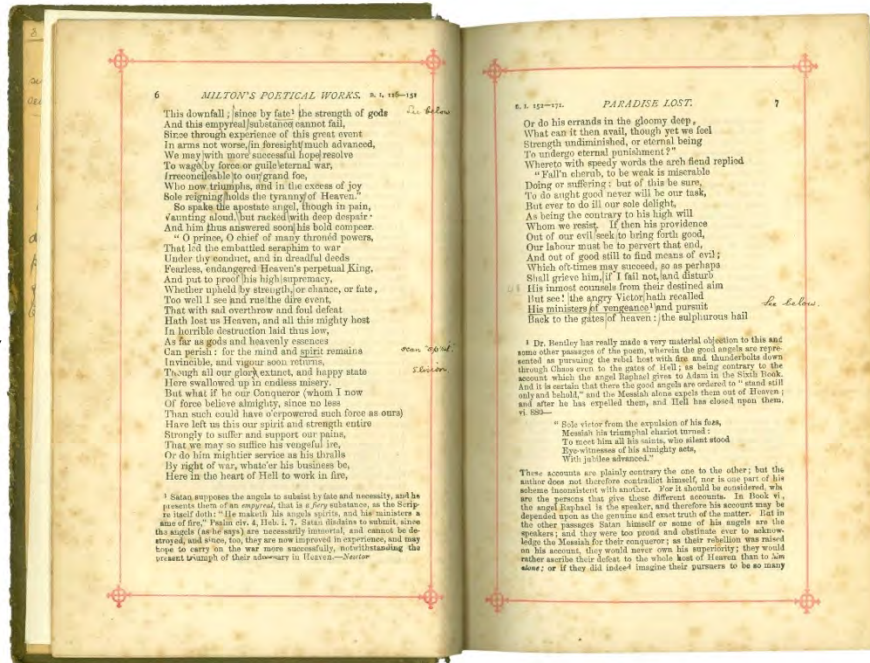 6 MILTON'S POETICAL WORKS. B. I. 116—151
This downfall; since by fate¹ the strength of gods See below
And this empyreal substance cannot fail,
Since through experience of this great event
In arms not worse, in foresight much advanced,
We may with more successful hope resolve
To wage by force or guile eternal war,
Irreconcileable to our grand foe,
Who now triumphs, and in the excess of joy
Sole reigning holds the tyranny of Heaven."
So spake the apostate angel, though in pain,
Vaunting aloud, but racked with deep despair·
And him thus answered soon his bold compeer.
"O prince, O chief of many thronéd powers,
That led the embattled seraphim to war
Under thy conduct, and in dreadful deeds
Fearless, endangered Heaven's perpetual King,
And put to proof his high supremacy,
Whether upheld by strength, or chance, or fate,
Too well I see and rue the dire event,
That with sad overthrow and foul defeat
Hath lost us Heaven, and all this mighty host
In horrible destruction laid thus low,
As far as gods and heavenly essences
Can perish: for the mind and spirit remains
Invincible, and vigour soon returns,
Though all our glory extinct, and happy state
Here swallowed up in endless misery.
But what if he our Conqueror (whom I now
Of force believe almighty, since no less
Than such could have o'erpowered such force as ours)
Have left us this our spirit and strength entire
Strongly to suffer and support our pains,
That we may so suffice his vengeful ire,
Or do him mightier service as his thralls
By right of war, whate'er his business be,
Here in the heart of Hell to work in fire,
¹ Satan supposes the angels to subsist by fate and necessity, and he
presents them of an empyreal, that is a fiery substance, as the Scrip
re itself doth: "He maketh his angels spirits, and his ministers a
ame of fire," Psalm civ. 4, Heb. i. 7. Satan disdains to submit, since
the angels (as he says) are necessarily immortal, and cannot be de-
stroyed, and since, too, they are now improved in experience, and may
hope to carry on the war more successfully, notwithstanding the
present triumph of their adversary in Heaven.—Newton
B. I. 152—171. PARADISE LOST. 7
Or do his errands in the gloomy deep,
What can it then avail, though yet we feel
Strength undiminished, or eternal being
To undergo eternal punishment?"
Whereto with speedy words the arch fiend replied
"Fall'n cherub, to be weak is miserable
Doing or suffering: but of this be sure,
To do aught good never will be our task,
But ever to do ill our sole delight,
As being the contrary to his high will
Whom we resist. If then his providence
Out of our evil seek to bring forth good,
Our labour must be to pervert that end,
And out of good still to find means of evil;
Which oft-times may succeed, so as perhaps
Shall grieve him, if I fail not, and disturb
His inmost counsels from their destined aim
But see! the angry Victor hath recalled
His ministers of vengeance¹ and pursuit See below.
Back to the gates of heaven: the sulphurous hail
¹ Dr. Bentley has really made a very material objection to this and
some other passages of the poem, wherein the good angels are repre-
sented as pursuing the rebel host with fire and thunderbolts down
through Chaos even to the gates of Hell; as being contrary to the
account which the angel Raphael gives to Adam in the Sixth Book.
And it is certain that there the good angels are ordered to "stand still
only and behold," and the Messiah alone expels them out of Heaven;
and after he has expelled them, and Hell has closed upon them,
vi. 880—
"Sole victor from the expulsion of his foes,
Messiah his triumphal chariot turned:
To meet him all his saints, who silent stood
Eye-witnesses of his almighty acts,
With jubilee advanced."
These accounts are plainly contrary the one to the other; but the
author does not therefore contradict himself, nor is one part of his
scheme inconsistent with another. For it should be considered, who
are the persons that give these different accounts. In Book vi,
the angel Raphael is the speaker, and therefore his account may be
depended upon as the genuine and exact truth of the matter. But in
the other passages Satan himself or some of his angels are the
speakers; and they were too proud and obstinate ever to acknow-
ledge the Messiah for their conqueror; as their rebellion was raised
on his account, they would never own his superiority; they would
rather ascribe their defeat to the whole host of Heaven than to him
alone; or if they did indeed imagine their pursuers to be so many